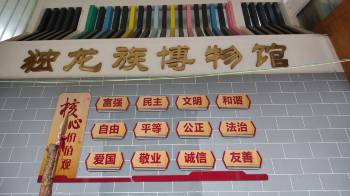 独龙族博物馆
核心价值观
富强 民主 文明 和谐
自由 平等 公正 法治
爱国 敬业 诚信 友善